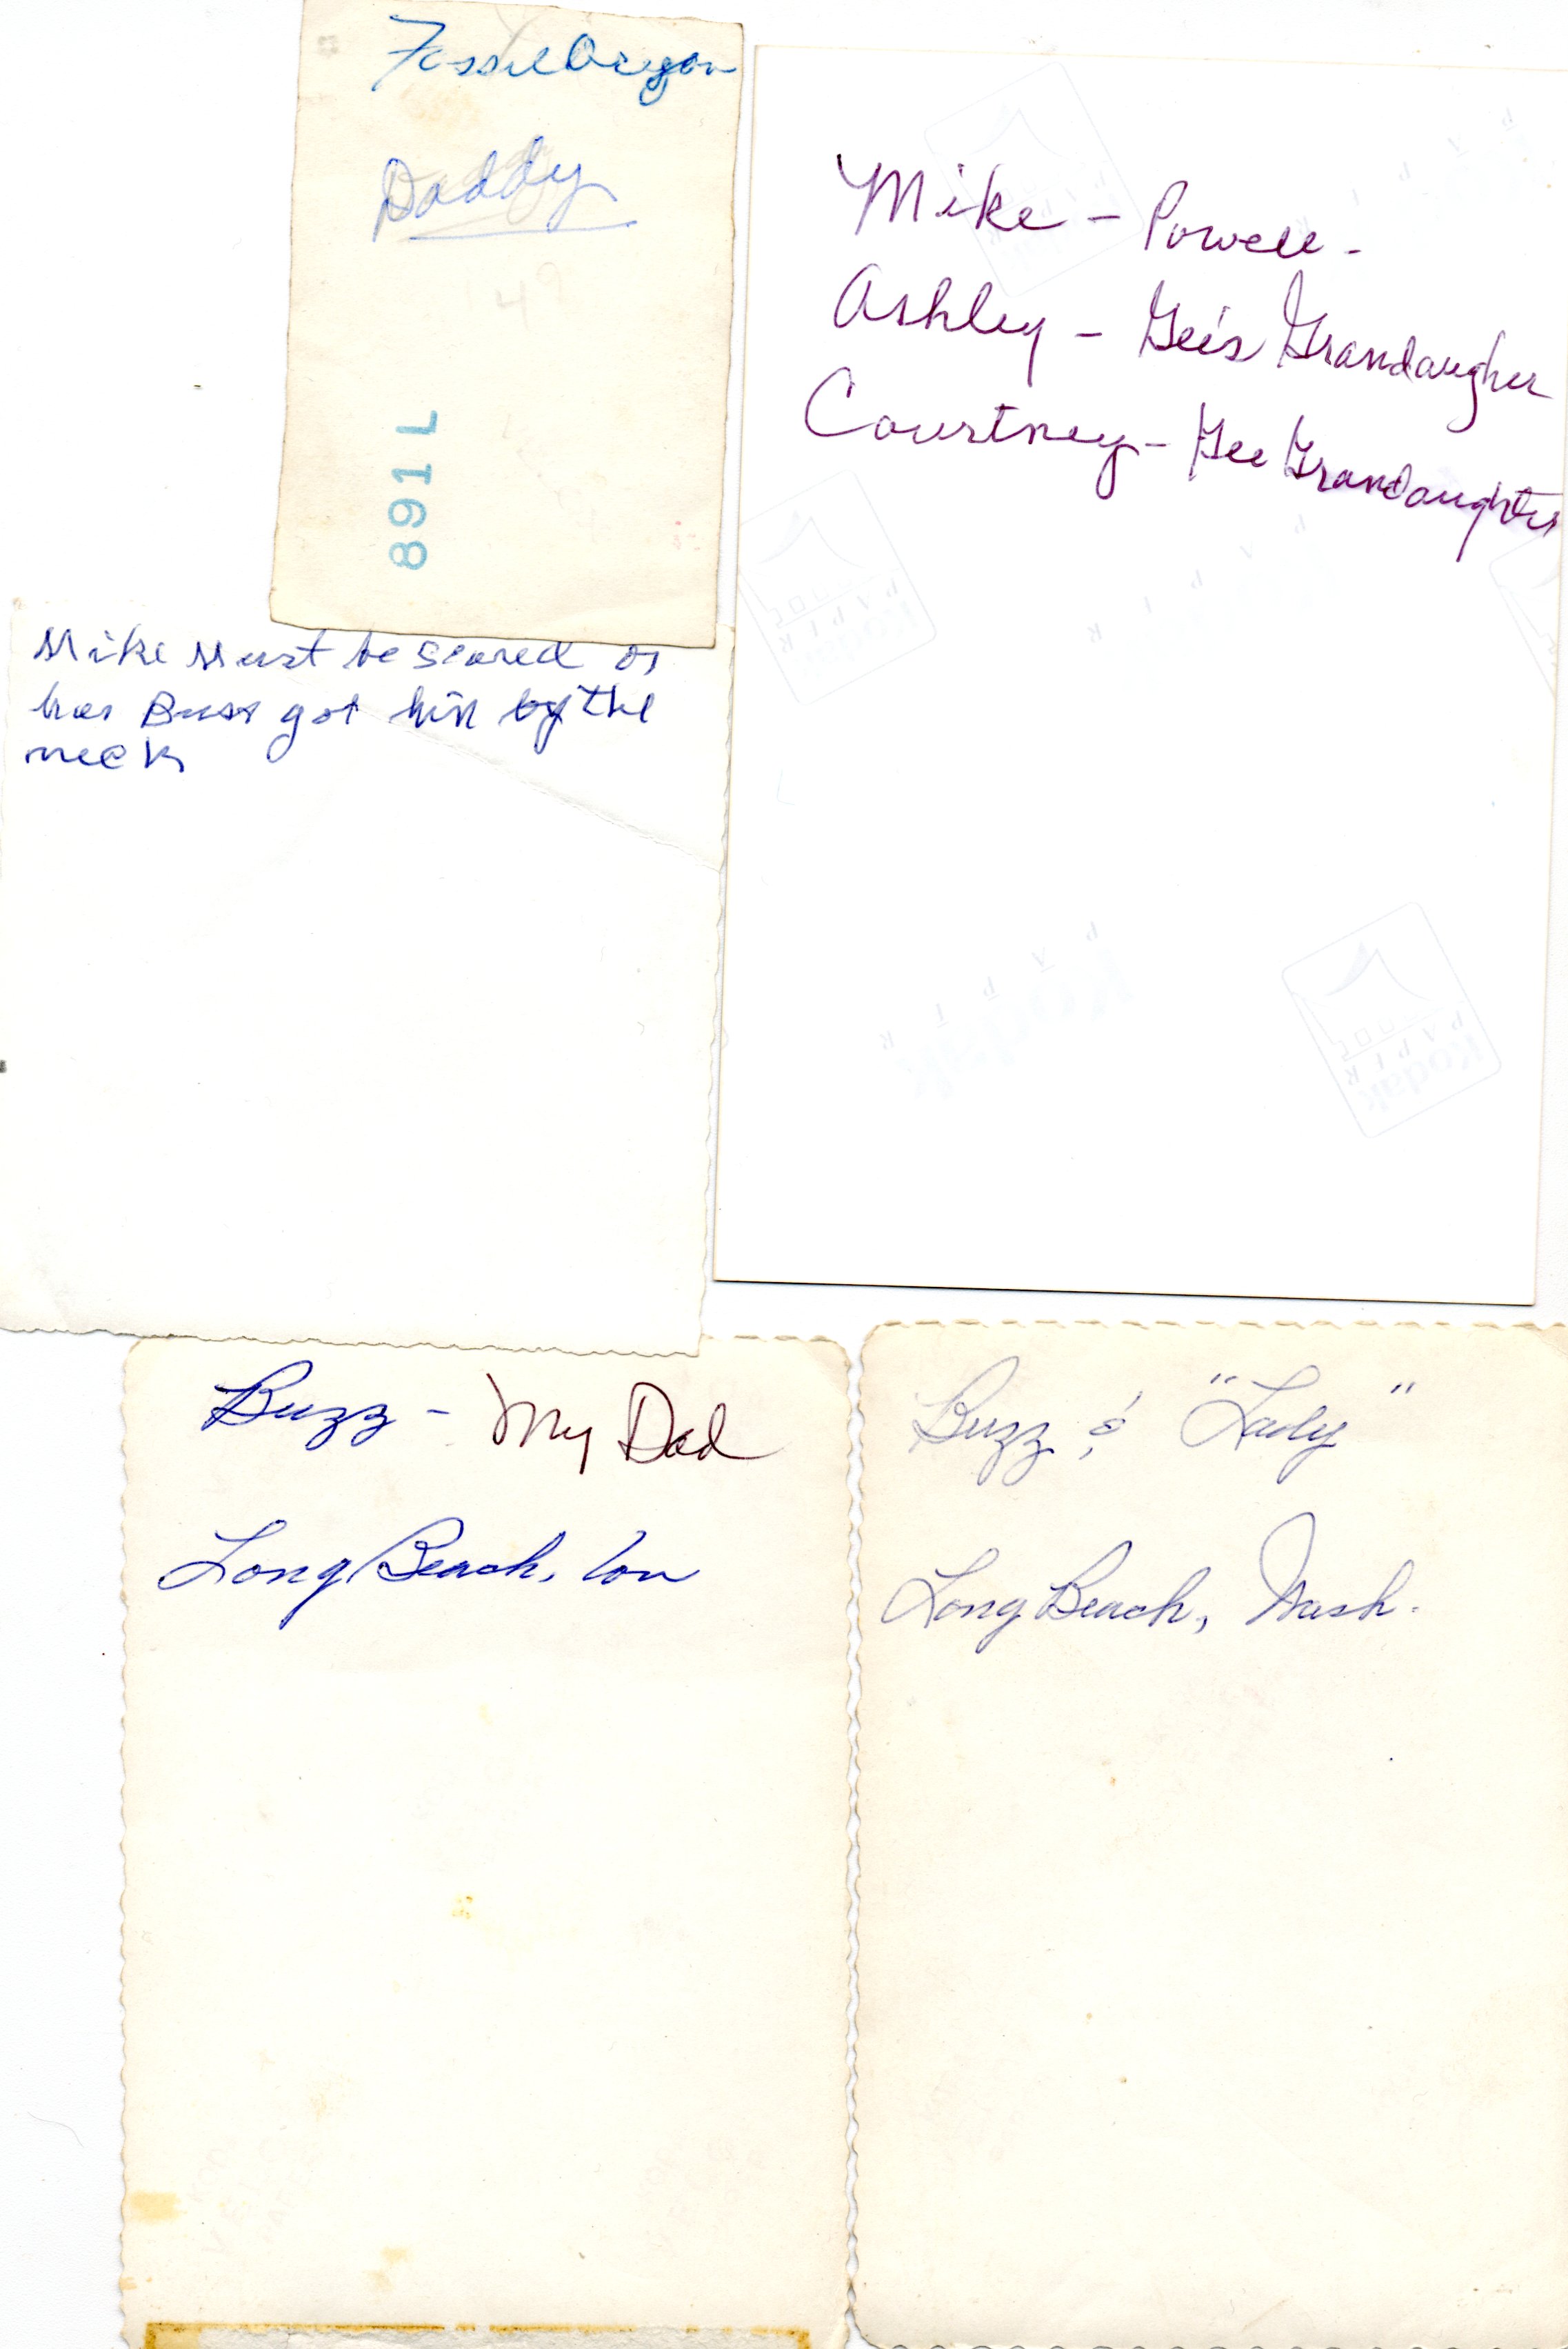 Fossil Oregon
Daddy
49
891L
Mike - Powell -
Ashley - Gee's Grandaugher
Courtney - Gee Grandaughter
Mike Must be scared or
has Buss got him by the
neck
Buzz - My Dad
Long Beach,
Buzz & "Lady"
Long Beach, Wash.
Kodak